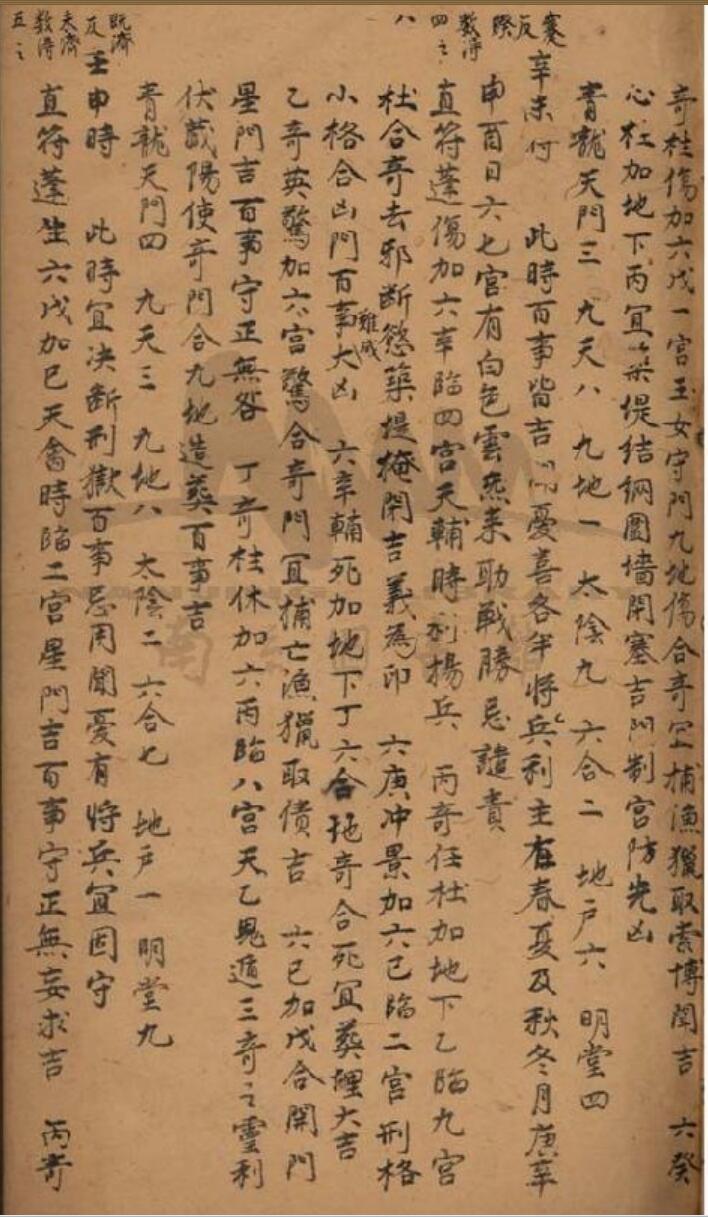 奇柱傷加六戊一宮玉女守門九地傷合奇宜捕漁獵取索博鬥吉　六癸
心杜加地下丙宜築堤結網圍墻閉塞吉門制宮防先凶
青龍天門三　九天八　九地一　太陰九　六合二　地戶六　明堂四
蹇反睽　數得四之八
辛未何　此時百事皆吉聞憂喜各半將兵利主在春夏及秋冬月庚辛
申酉日六七宮有白色雲炁來助戰勝忌譴責
直符蓬傷加六辛臨四宮天輔時利揚兵　丙奇任杜加地下乙臨九宮
杜合奇去邪斷慾築堤掩閉吉義為印　六庚冲景加六己臨二宮刑格
小格合凶門百事難成大凶　六辛輔死加地下丁六合地奇合死宜葬埋大吉
乙奇英驚加六宮驚合奇門宜捕亡漁獵取債吉　六己加戊合開門
星門吉百事守正無咎　丁奇柱休加六丙臨八宮天乙鬼遁三奇之靈利
伏藏陽使奇門合九地造葬百事吉
青龍天門四　九天三　九地八　太陰二　六合七　地戶一　明堂九
既濟反未濟　數得五之
壬申時　此時宜決斷刑獄百事忌用聞憂有將兵宜固守
直符蓬生六戊加己天禽時臨二宮星門吉百事守正無妄求吉　丙奇